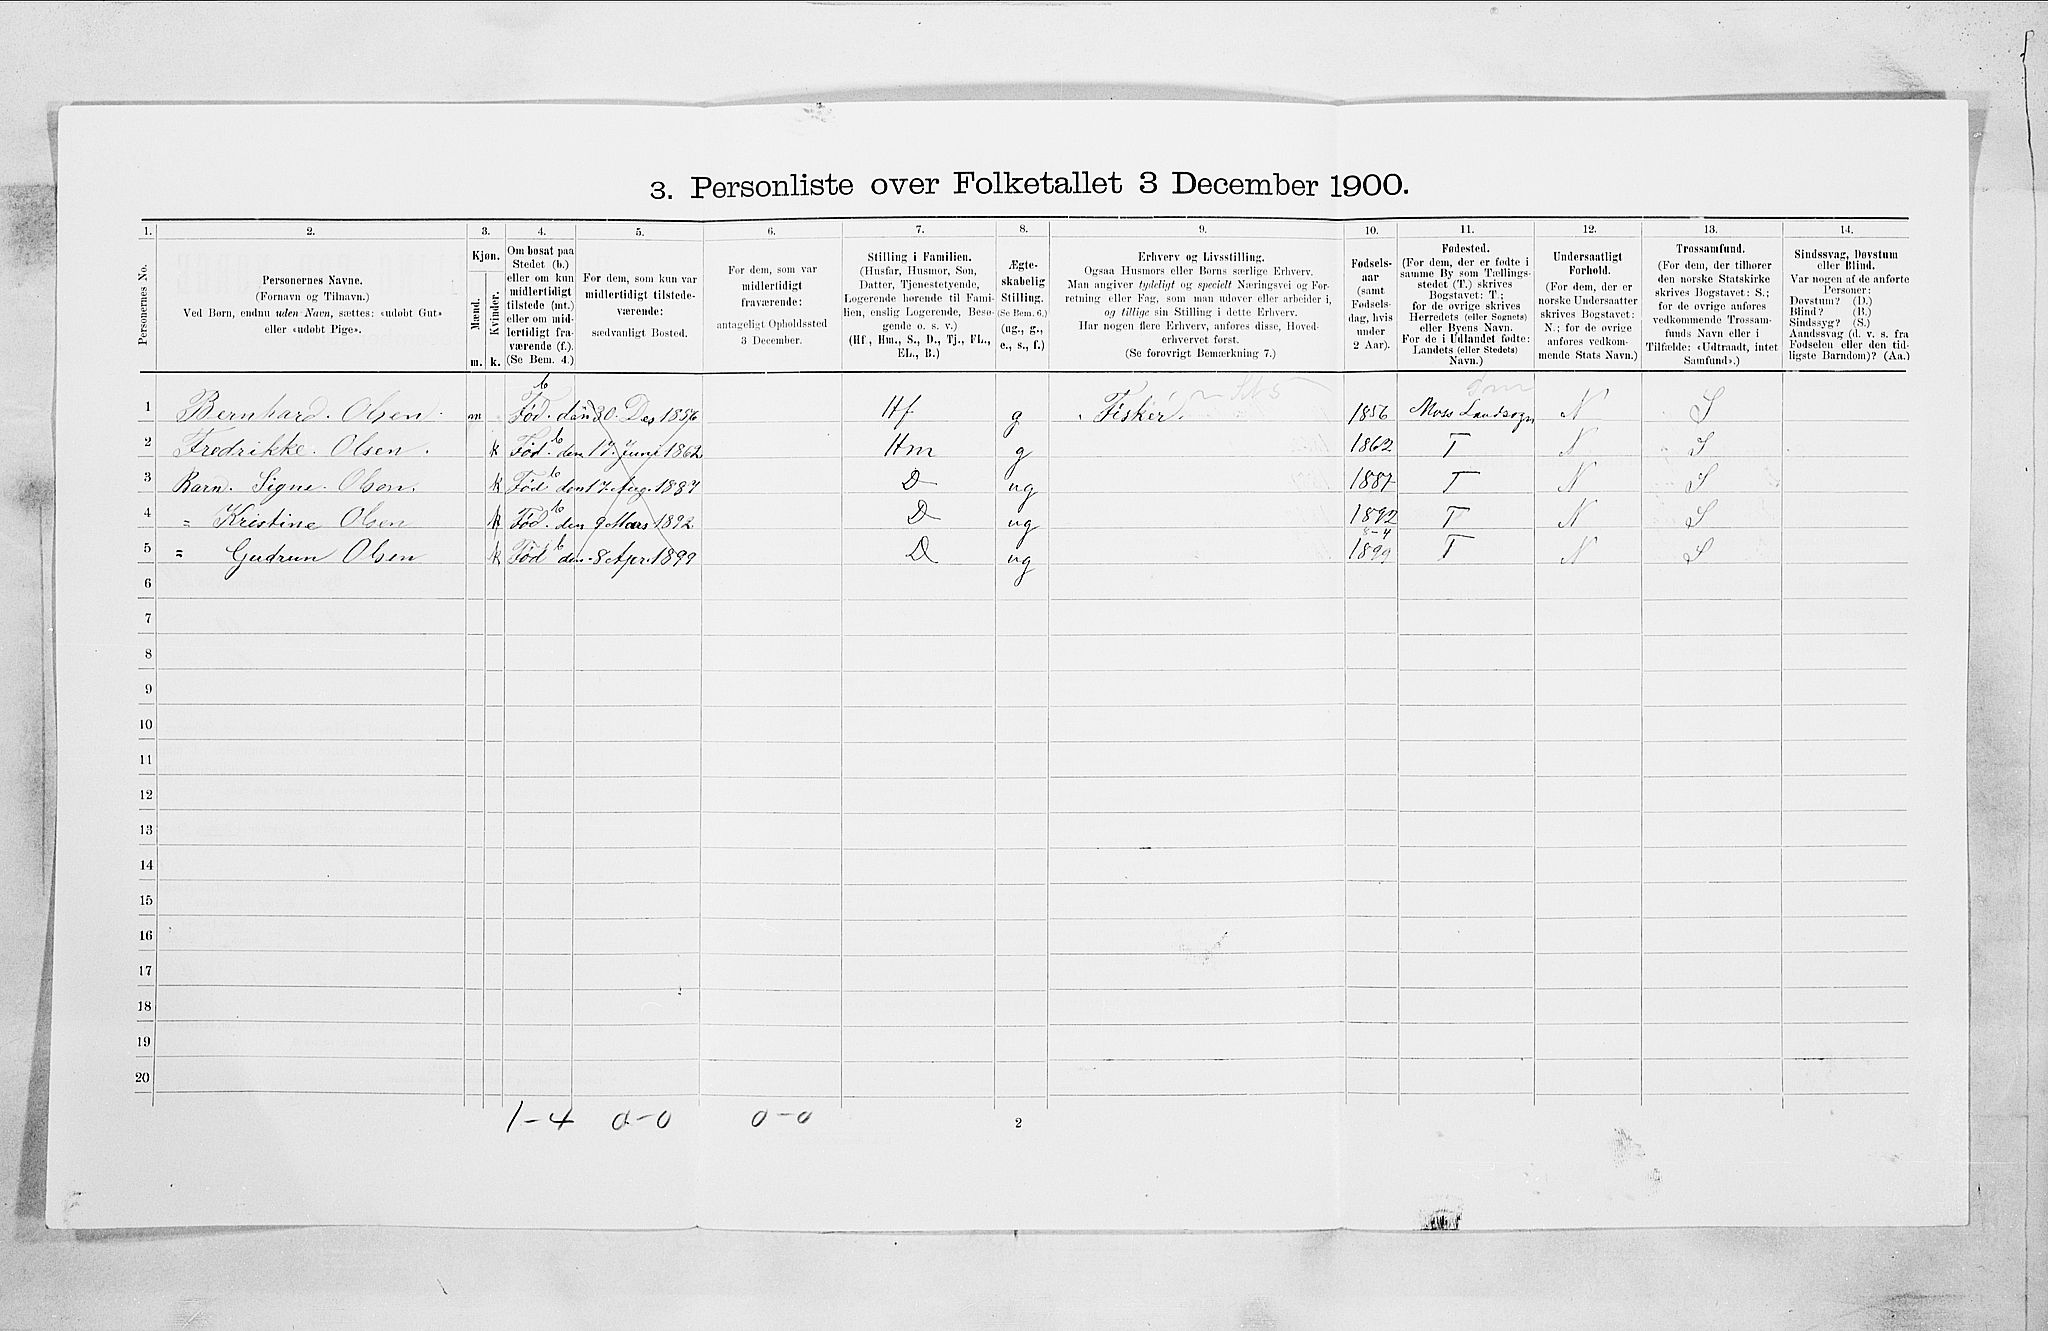 3. Personliste over Folketallet 3 December 1900.
1. 2. 3. 4. 5. 6. 7. 8. 9. 10. 11. 12. 13. 14.
Personernes No.
Personernes Navne.
(Fornavn og Tilnavn.)
Ved Børn, endnu uden Navn, sættes: «udøbt Gut»
eller «udøbt Pige».
Kjøn.
Mænd.
Kvinder.
m. k.
Om bosat paa
Stedet (b.)
eller om kun
midlertidigt
tilstede (mt.)
eller om mid-
lertidigt fra-
værende (f.).
(Se Bem. 4.)
For dem, som kun var
midlertidigt tilstede-
værende:
sædvanligt Bosted.
For dem, som var
midlertidigt
fraværende:
antageligt Opholdssted
3 December.
Stilling i Familien.
(Husfar, Husmor, Søn,
Datter, Tjenestetyende,
Logerende hørende til Fami-
lien, enslig Logerende, Besø-
gende o. s. v.)
(Hf., Hm., S., D., Tj., FL.,
EL., B.)
Ægte-
skabelig
Stilling.
(Se Bem. 6.)
(ug., g.,
e., s., f.)
Erhverv og Livsstilling.
Ogsaa Husmors eller Børns særlige Erhverv.
Man angiver tydeligt og specielt Næringsvei og For-
retning eller Fag, som man udøver eller arbeider i,
og tillige sin Stilling i dette Erhverv.
Har nogen flere Erhverv, anføres disse, Hoved-
erhvervet først.
(Se forøvrigt Bemærkning 7.)
Fødsels-
aar
(samt
Fødsels-
dag, hvis
under
2 Aar).
Fødested.
(For dem, der er fødte i
samme By som Tællings-
stedet (T.) skrives
Bogstavet: T.;
for de øvrige skrives
Herredets (eller Sognets)
eller Byens Navn.
For de i Udlandet fødte:
Landets (eller Stedets)
Navn.)
Undersaatligt
Forhold.
(For dem, der er
norske Undersaatter
skrives Bogstavet:
N.; for de øvrige
anføres vedkom-
mende Stats Navn.)
Trossamfund.
(For dem, der tilhører
den norske Statskirke
skrives Bogstavet: S.;
for de øvrige anføres
vedkommende Trossam-
funds Navn eller i
Tilfælde: «Udtraadt, intet
Samfund».)
Sindssvag, Døvstum
eller Blind.
Var nogen af de anførte
Personer:
Døvstum? (D.)
Blind? (B.)
Sindssyg? (S.)
Aandssvag (d. v. s. fra
Fødselen eller den tid-
ligste Barndom)? (Aa.)
1 Bernhard. Olsen. m b Fød. den 30. Des 1856 Hf g Fisker. 1856 Moss Landsogn N S
2 Fredrikke. Olsen. k b Fød. den 17. Juni 1862 Hm g 1862 T N S
3 Barn. Signe. Olsen. k b Fød den 17 Aug. 1887 D ug 1887 T N S
4 " Kristine Olsen k b Fød. den 9 Mars 1892 D ug 1892 T N S
5 " Gudrun Olsen k b Fød den 8 Apr. 1899 D ug 8-4 1899 T N S
6
7
8
9
10
11
12
13
14
15
16
17
18
19
20
1-4 0-0 0-0
2